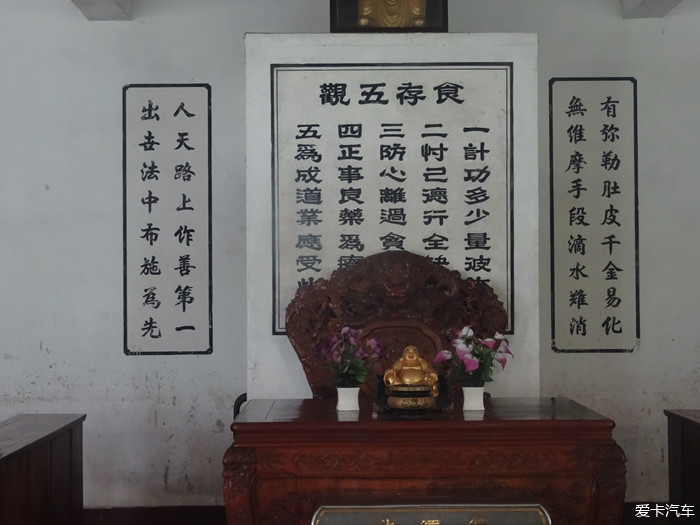 有弥勒肚皮千金易化
無維摩手段滴水難消
食存五觀
一計功多少量彼
二忖己德行全缺
三防心離過貪
四正事良藥爲療
五爲成道業應受此
人天路上作善第一
出世法中布施爲先
爱卡汽车